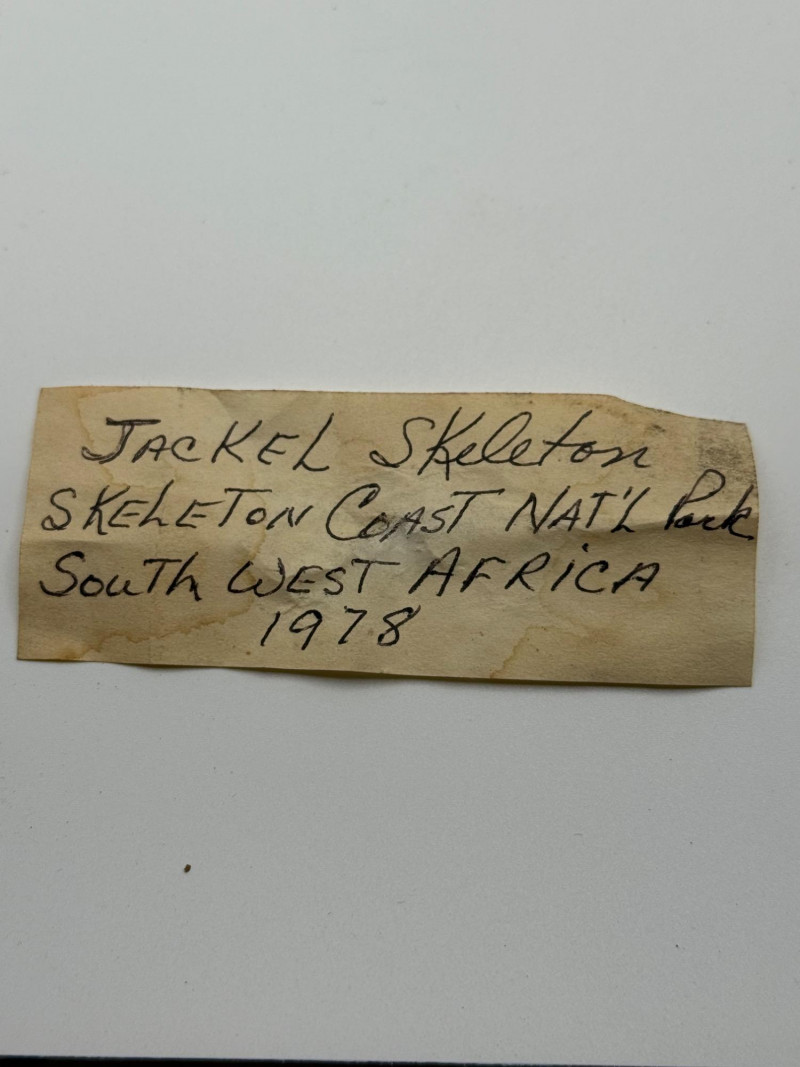 JACKEL Skeleton
SKELETON COAST NAT'L Park
South WEST AFRiCA
1978